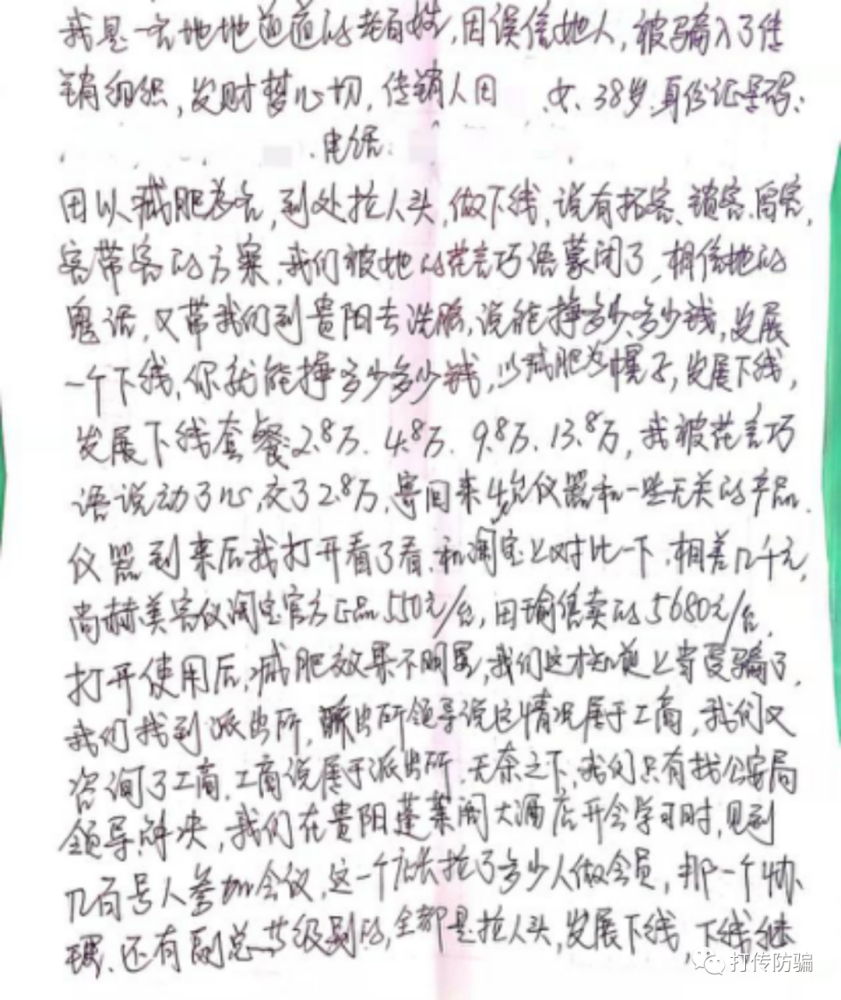 我是一名地地道道的老百姓,因误信她人,被骗入了传
销组织,发财梦心切,传销人田 女、38岁.身份证号码:
.电话:
田以减肥为名,到处拉人头,做下线,说有拓客、锁客.留客,
客带客的方案.我们被她的花言巧语蒙闭了,相信她的
鬼话,又带我们到贵阳去洗脑,说能挣多少多少钱,发展
一个下线,你就能挣多少多少钱,以减肥为幌子,发展下线,
发展下线套餐:2.8万、4.8万、9.8万、13.8万,我被花言巧
语说动了心,交了2.8万,寄回来4台仪器和一些无关的产品.
仪器到来后我打开看了看.和淘宝上对比一下.相差几千元,
尚赫美容仪淘宝官方正品550元/台,田瑜售卖的5680元/台.
打开使用后,减肥效果不明显,我们这才知道上当受骗了,
我们找到派出所,派出所领导说这情况属于工商,我们又
咨询了工商.工商说属于派出所.无奈之下,我们只有找公安局
领导解决,我们在贵阳蓬莱阁大酒店开会学习时,见到
几百号人参加会议,这一个店长拉了多少人做会员,那一个协
理.还有副总等级别的,全都是拉人头,发展下线,下线继
打传防骗